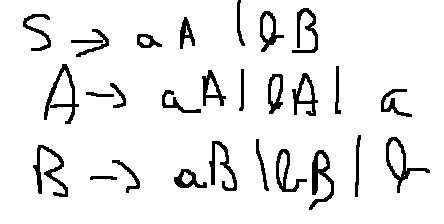 S → aA | bB
A → aA | bA | a
B → aB | bB | b